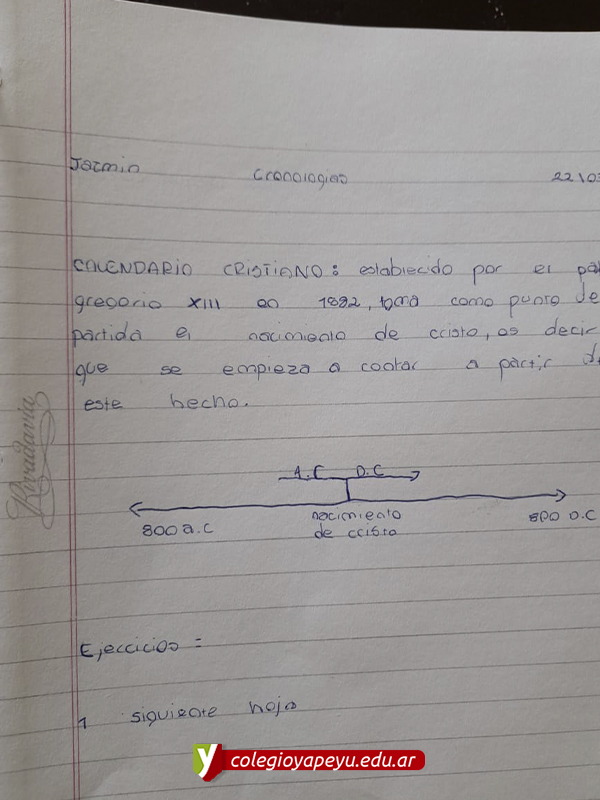 Jazmin Cronologias 22\03
CALENDARIO CRISTIANO: establecido por el pa
gregorio XIII en 1892, toma como punto de
partida el nacimiento de ccisto, es decir
que se empieza a contar a partir d
este hecho.
Rivadavia
A.C D.C
800 a.C nacimiento 800 D.C
de ccisto
Ejeccicios:
1 siguiente hoja
colegioyapeyu.edu.ar